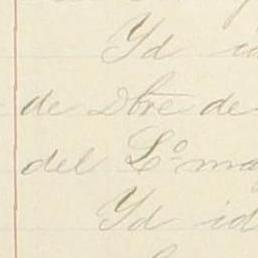 Yd id
de Dbre de
del Lº may
Yd id